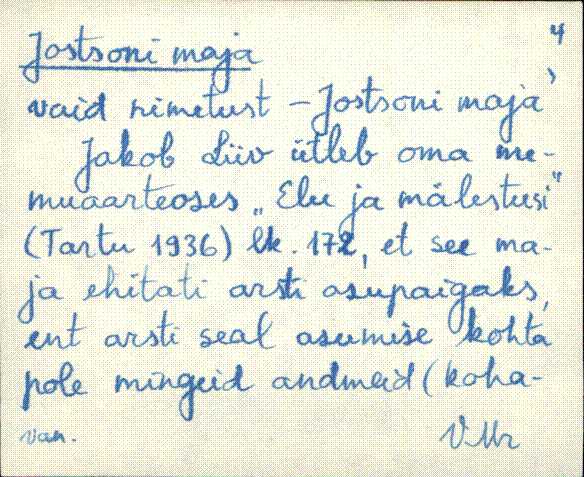 4
Jostsoni maja
vaid nimetust – Jostsoni maja'
Jakob Liiv ütleb oma me-
muaarteoses „Elu ja mälestusi"
(Tartu 1936) lk. 172, et see ma-
ja ehitati arsti asupaigaks,
ent arsti seal asumise kohta
pole mingeid andmeid (koha-
van.